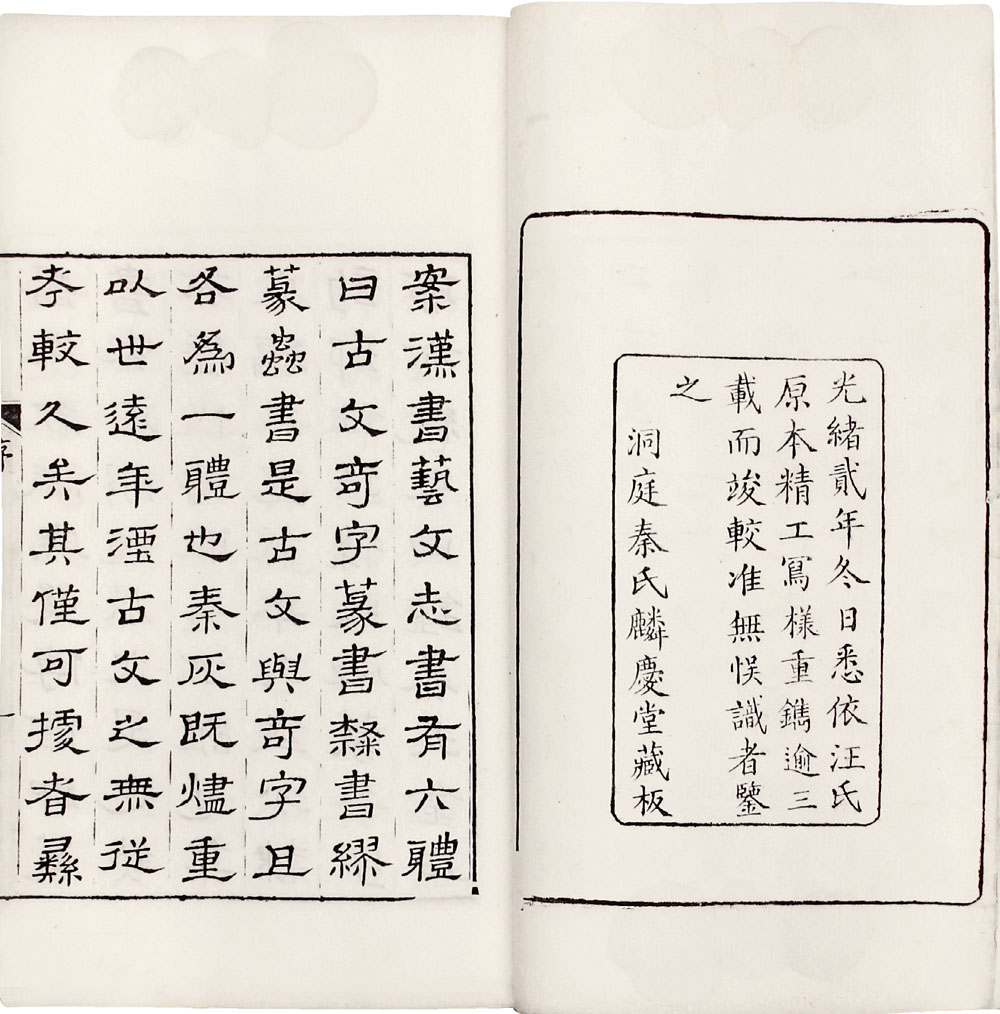 光緒貳年冬日悉依汪氏
原本精工寫樣重鐫逾三
載而竣較准無悮識者鑒
之
洞庭秦氏麟慶堂藏板
案漢書藝文志書有六體
曰古文奇字篆書隸書繆
篆蟲書是古文與奇字且
各爲一體也秦灰旣燼重
以世遠年湮古文之無從
考較久矣其僅可據者彝
序
一